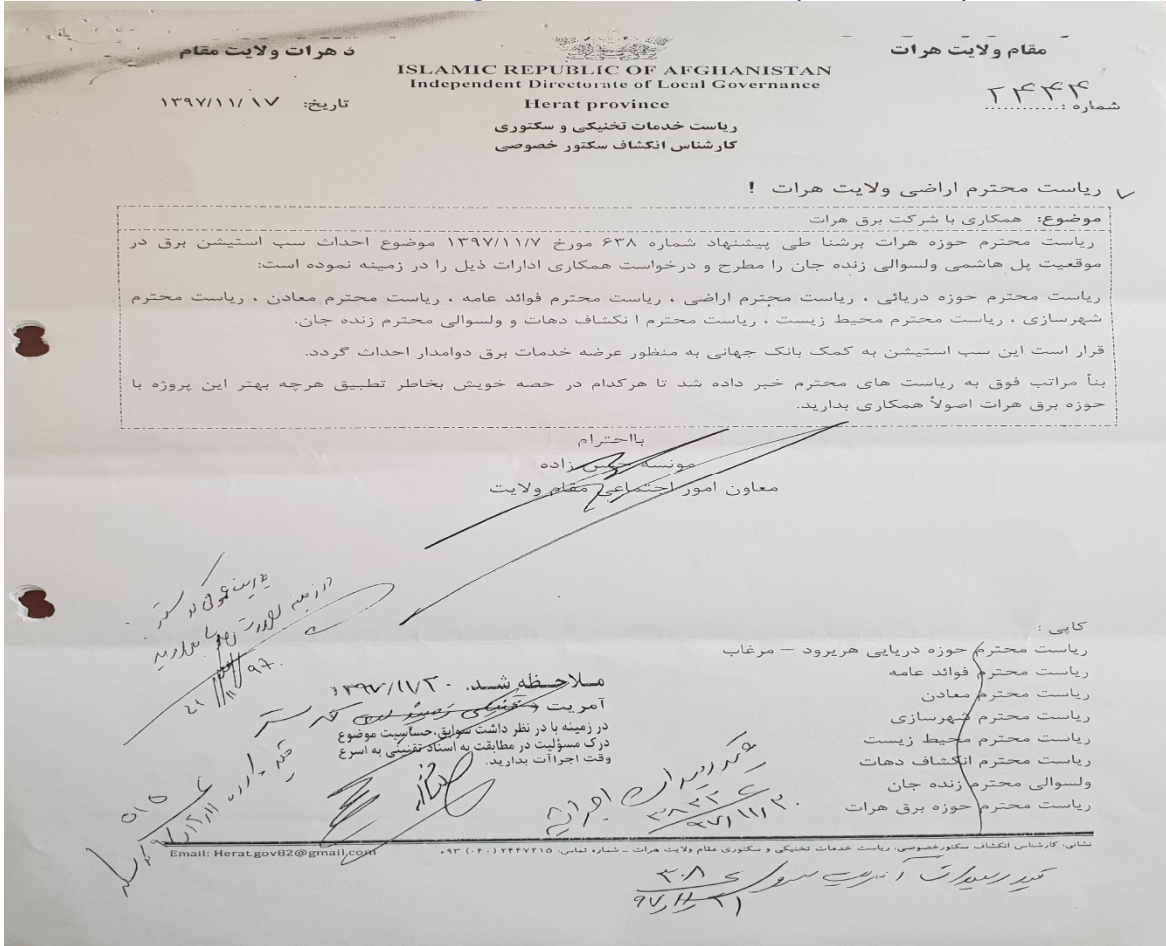 مقام ولایت هرات
د هرات ولایت مقام
ISLAMIC REPUBLIC OF AFGHANISTAN
Independent Directorate of Local Governance
Herat province
شماره : ۲۴۴۴
تاریخ: ۱۳۹۷/۱۱/۱۷
ریاست خدمات تخنیکی و سکتوری
کارشناس انکشاف سکتور خصوصی
ریاست محترم اراضی ولایت هرات !
موضوع: همکاری با شرکت برق هرات
ریاست محترم حوزه هرات برشنا طی پیشنهاد شماره ۶۳۸ مورخ ۱۳۹۷/۱۱/۷ موضوع احداث سب استیشن برق در
موقعیت پل هاشمی ولسوالی زنده جان را مطرح و درخواست همکاری ادارات ذیل را در زمینه نموده است:
ریاست محترم حوزه دریائی ، ریاست محترم اراضی ، ریاست محترم فوائد عامه ، ریاست محترم معادن ، ریاست محترم
شهرسازی ، ریاست محترم محیط زیست ، ریاست محترم ا نکشاف دهات و ولسوالی محترم زنده جان.
قرار است این سب استیشن به کمک بانک جهانی به منظور عرضه خدمات برق دوامدار احداث گردد.
بنأ مراتب فوق به ریاست های محترم خبر داده شد تا هرکدام در حصه خویش بخاطر تطبیق هرچه بهتر این پروژه با
حوزه برق هرات اصولاً همکاری بدارید.
بااحترام
مونسه حسن زاده
معاون امور اجتماعی مقام ولایت
کاپی :
ریاست محترم حوزه دریایی هریرود – مرغاب
ریاست محترم فوائد عامه
ریاست محترم معادن
ریاست محترم شهرسازی
ریاست محترم محیط زیست
ریاست محترم انکشاف دهات
ولسوالی محترم زنده جان
ریاست محترم حوزه برق هرات
در زمینه
۲۱/۱۱/۹۷
ملاحظه شد. ۱۳۹۷/۱۱/۲۰
آمریت
در زمینه با در نظر داشت سوابق،حساسیت موضوع
درک مسؤلیت در مطابقت به اسناد تقنینی به اسرع
وقت اجراآت بدارید.
۵۱۵
۳۸۳۳
۹۷/۱۱/۲۰
نشانی: کارشناس انکشاف سکتورخصوصی، ریاست خدمات تخنیکی و سکتوری مقام ولایت هرات – شماره تماس: ۲۴۴۷۲۱۵ (۰۴۰) ۹۳+
Email: Herat.gov82@gmail.com
۳۰۸